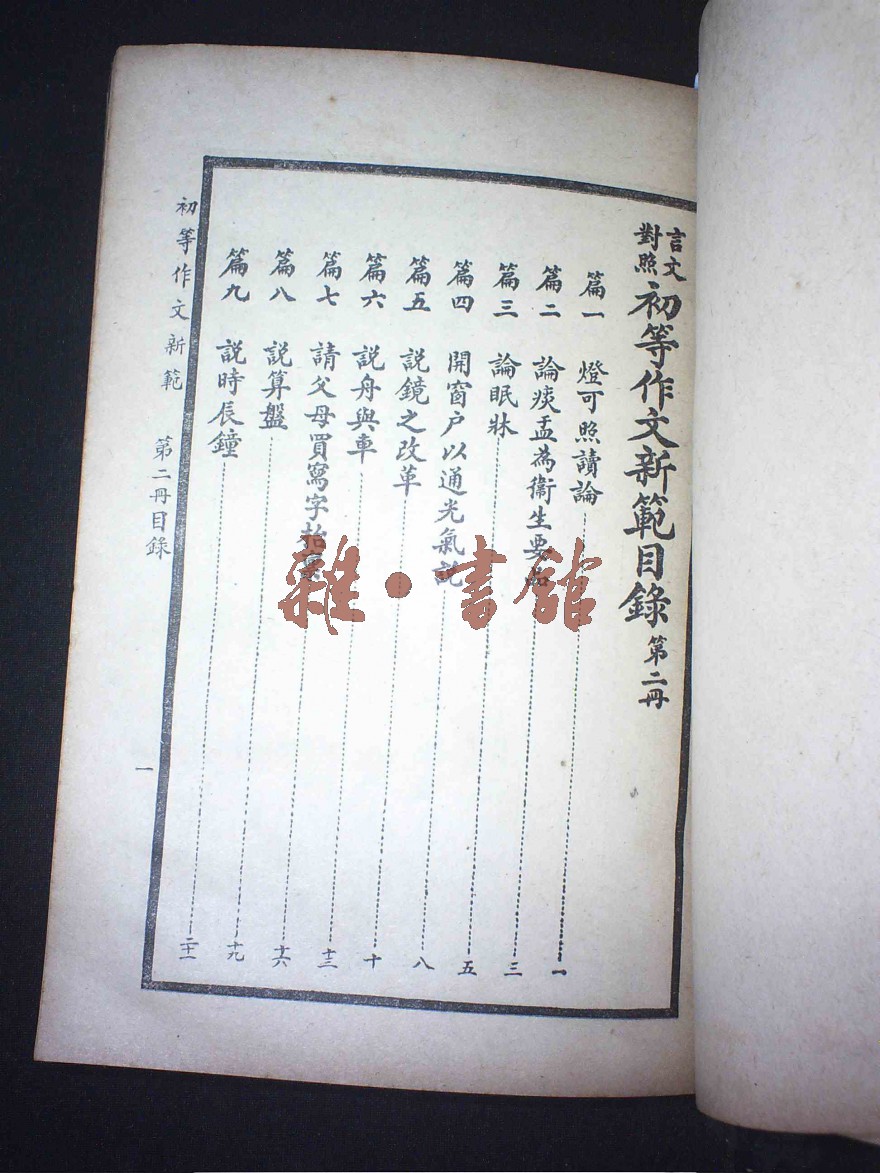 言文對照初等作文新範目錄 第二冊
篇一 燈可照讀論 一
篇二 論痰盂為衞生要品 三
篇三 論眠牀 五
篇四 開窗户以通光氣説 八
篇五 説鏡之改革 十
篇六 説舟與車 十三
篇七 請父母買寫字抬 十六
篇八 説算盤 十九
篇九 説時辰鐘 二十一
初等作文新範 第二冊目錄 一
雜·書館